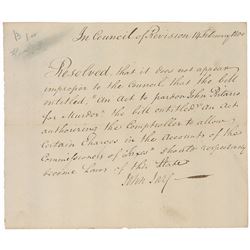 In Council of Revision 14 February 1800
Resolved, that it does not appear
improper to the Council that the bill
entitled, "An Act to pardon John Pastano
for Murder" the bill entitled "An Act
authorizing the Comptroller to allow
Certain Charges in the Accounts of the
Commissioners of Taxes" should respectively
become Laws of this State
John Jay